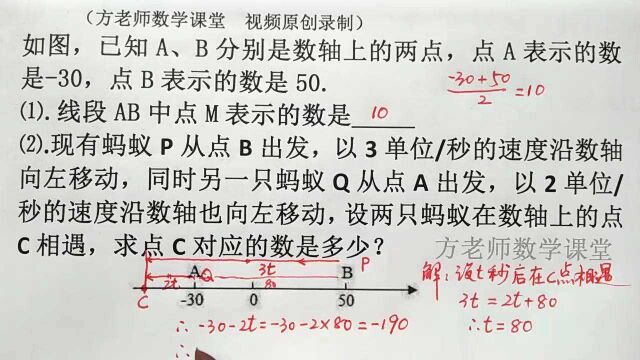 （方老师数学课堂 视频原创录制）
如图，已知 A、B 分别是数轴上的两点，点 A 表示的数
是-30，点 B 表示的数是 50.
-30+50
2
=10
⑴. 线段 AB 中点 M 表示的数是 10
⑵.现有蚂蚁 P 从点 B 出发，以 3 单位/秒的速度沿数轴
向左移动，同时另一只蚂蚁 Q 从点 A 出发，以 2 单位/
秒的速度沿数轴也向左移动，设两只蚂蚁在数轴上的点
C 相遇，求点 C 对应的数是多少？
方老师数学课堂
3t
P
A
Q
B
2t
80
C
-30
0
50
解:设t秒后在C点相遇
3t=2t+80
∴t=80
∴ -30-2t=-30-2×80=-190
∴